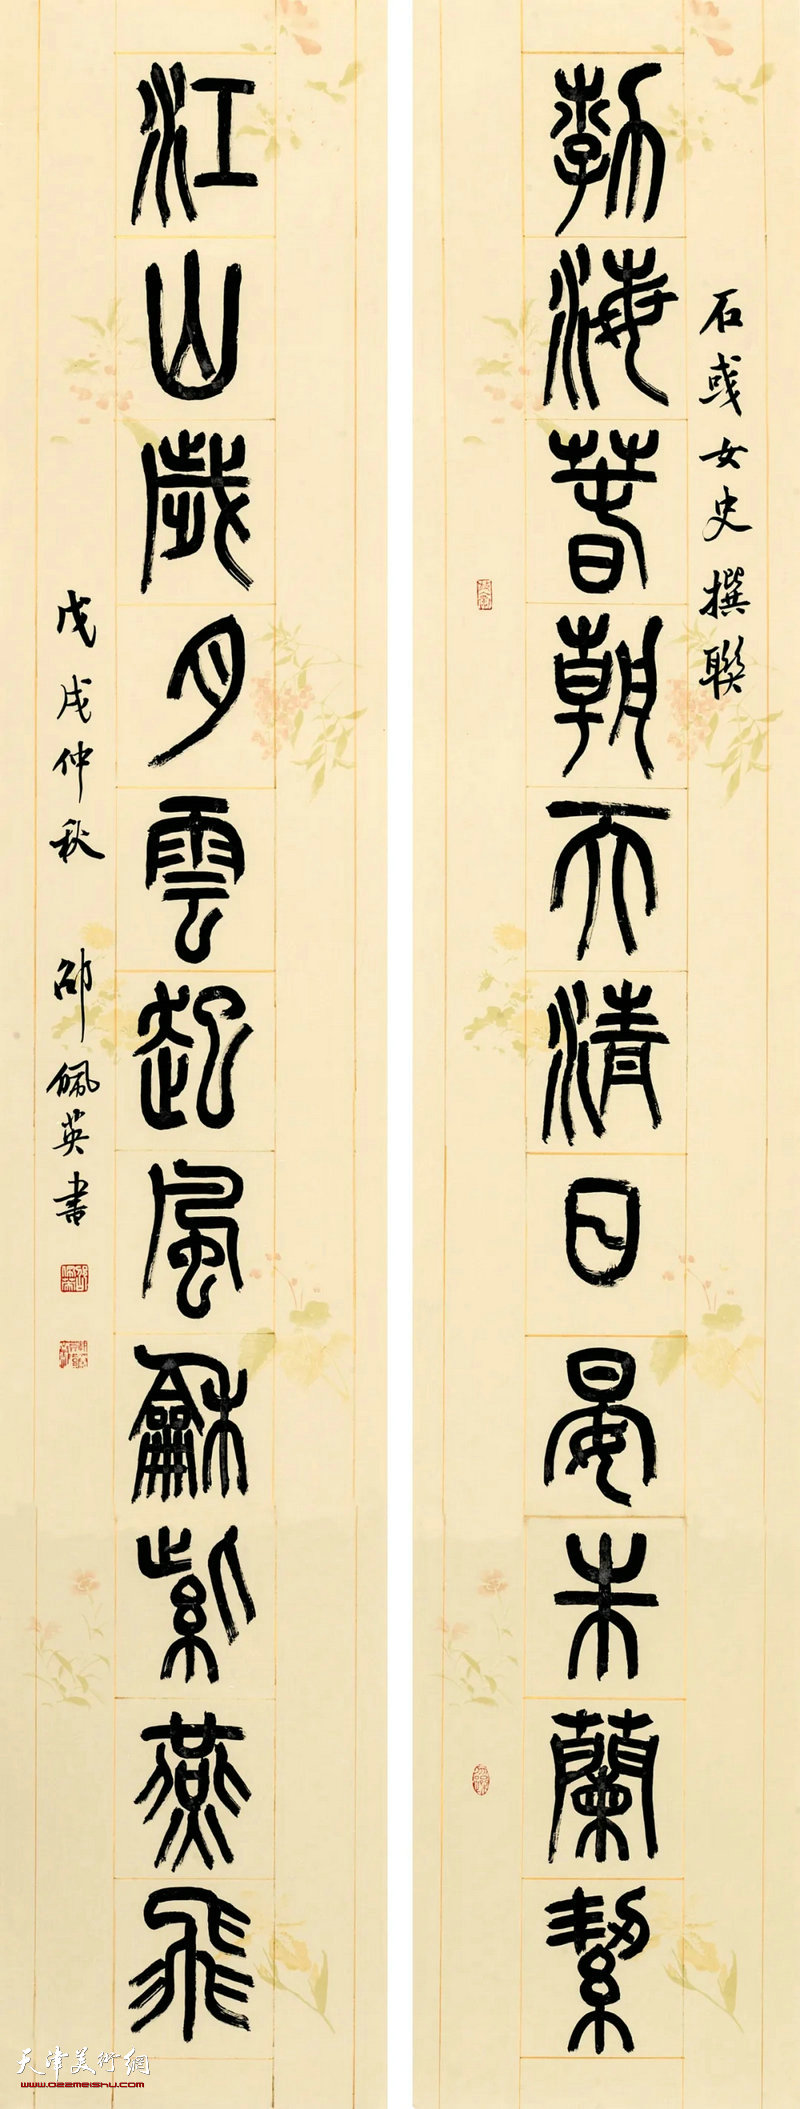 石彧女史撰聯
勃海春朝天清日晏朱蘭絜
江山歲月雲起風龢紫燕飛
戊戌仲秋 邵佩英書
天津美術網
www.022meishu.com